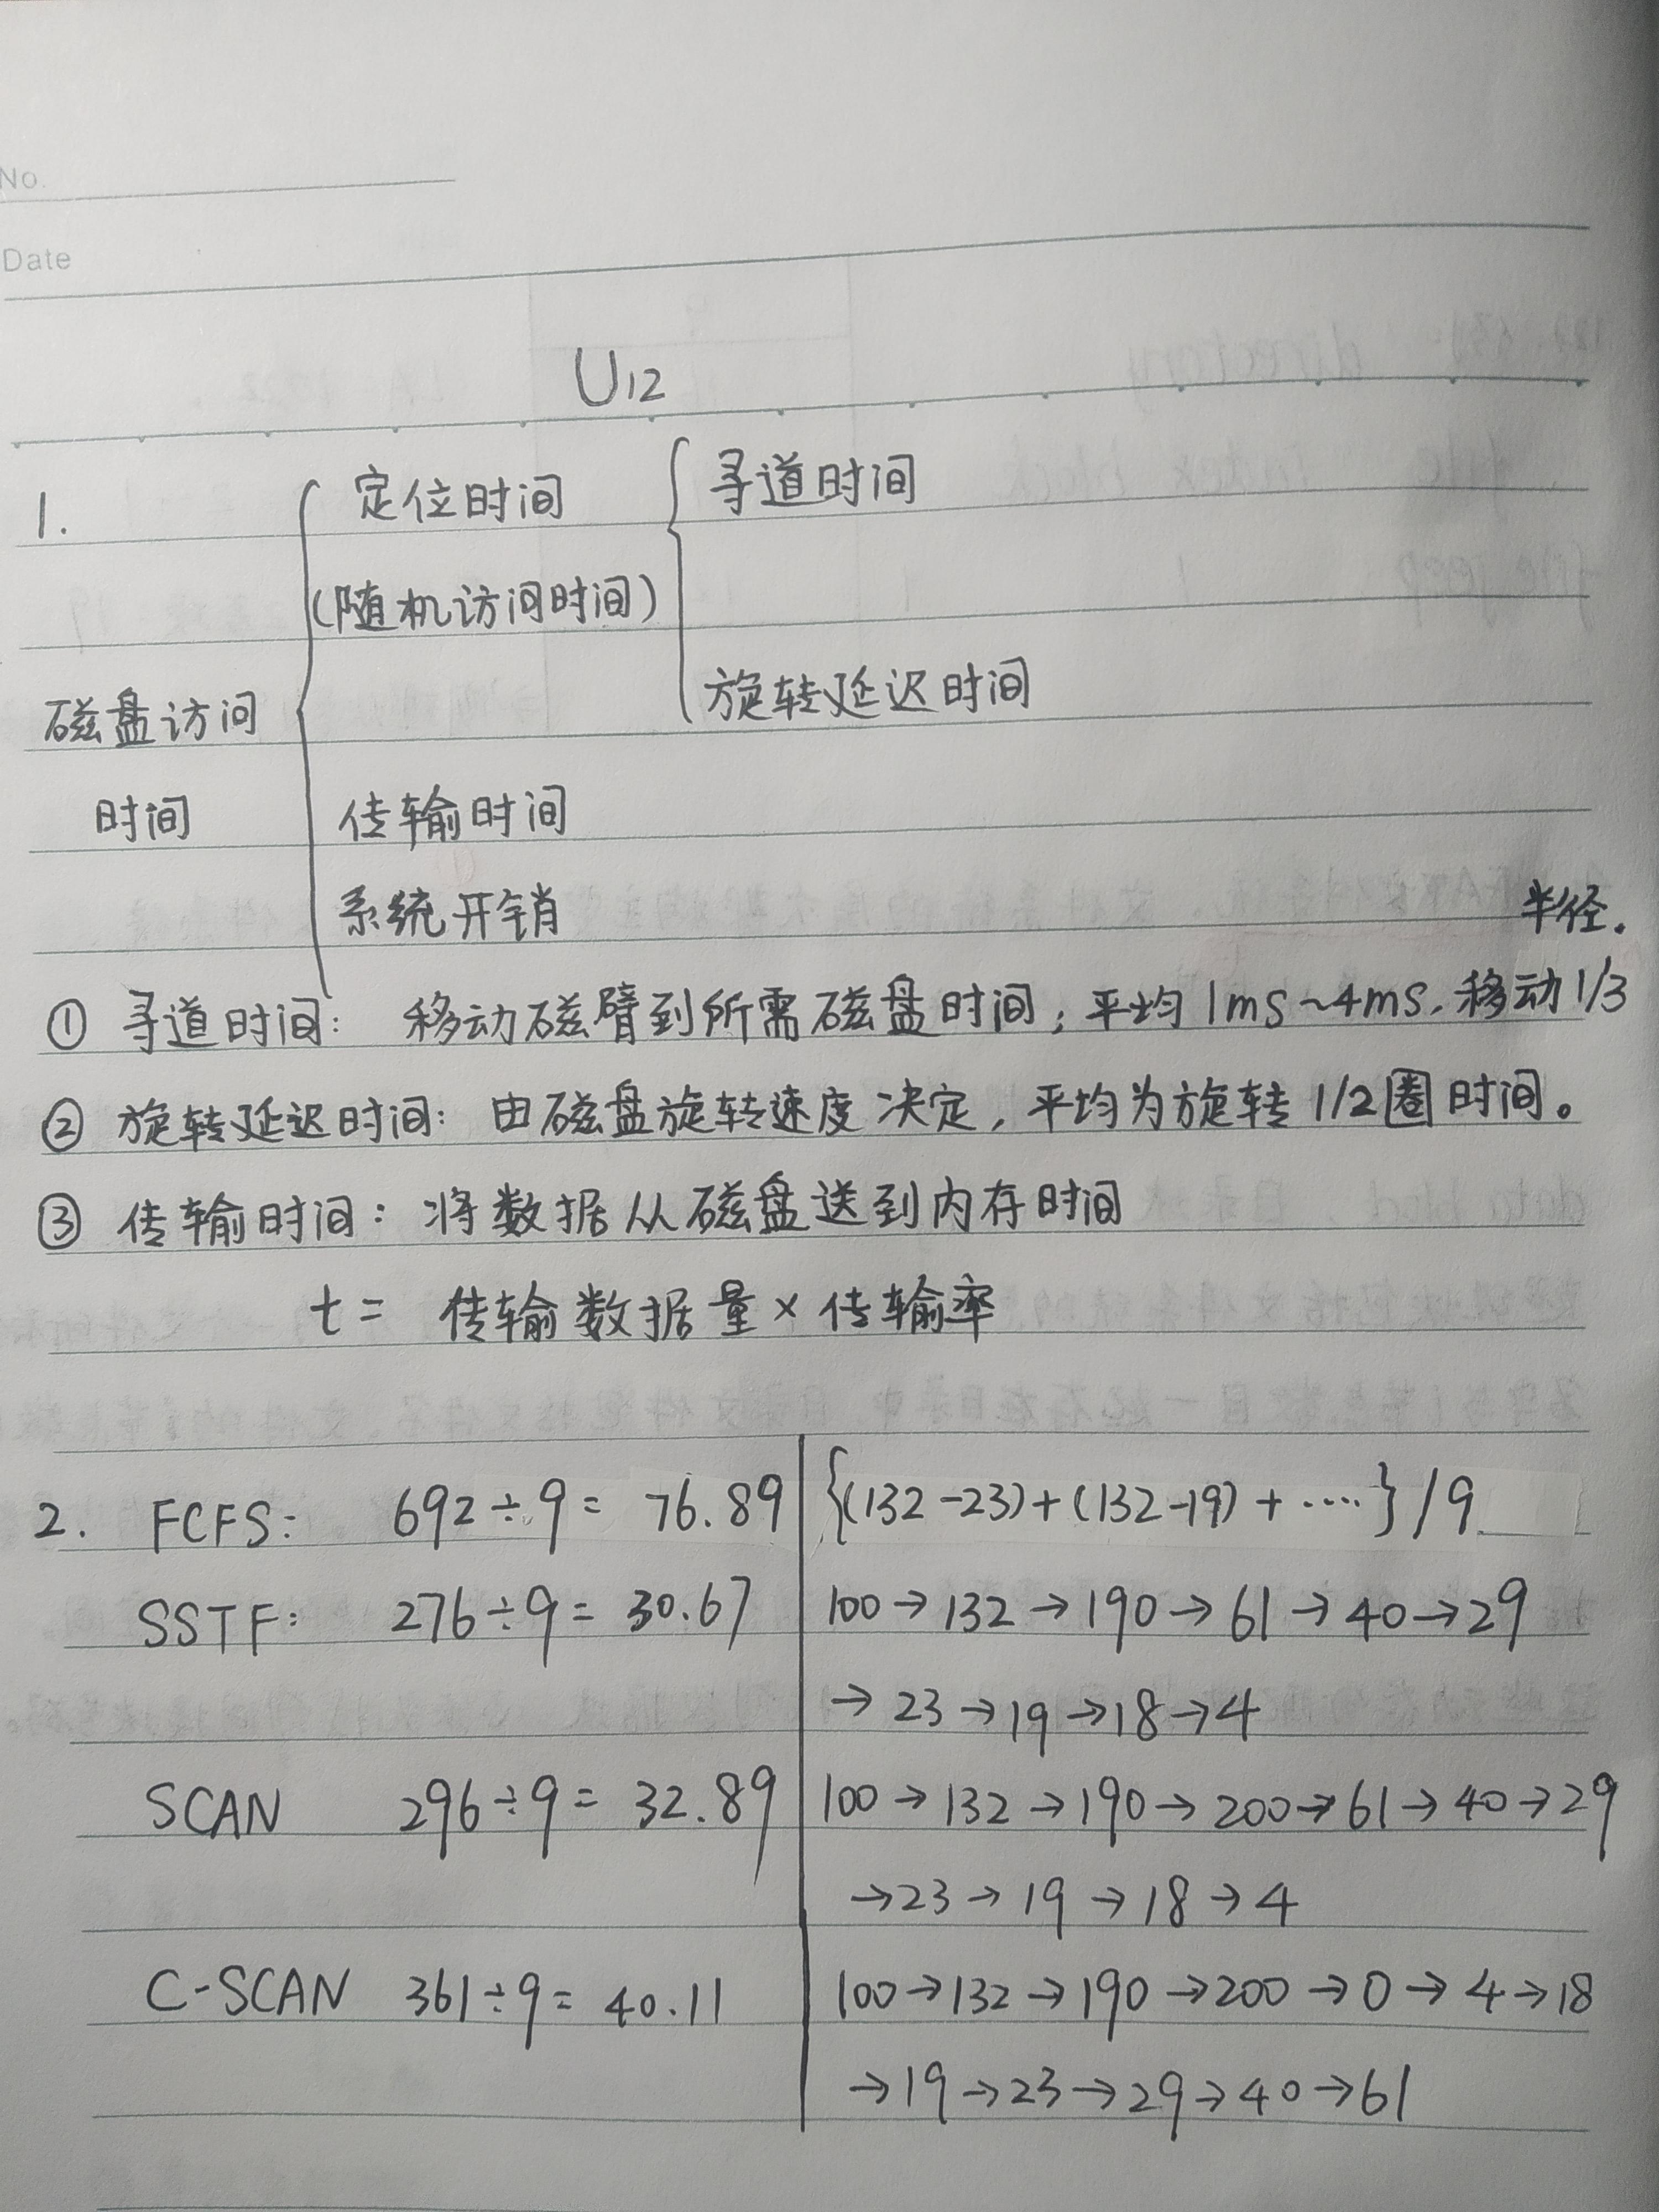 No.
Date
U12
1.
定位时间
寻道时间
(随机访问时间)
旋转延迟时间
磁盘访问
时间
传输时间
系统开销
半径.
① 寻道时间: 移动磁臂到所需磁盘时间; 平均1ms~4ms. 移动1/3
② 旋转延迟时间: 由磁盘旋转速度决定, 平均为旋转1/2圈时间。
③ 传输时间: 将数据从磁盘送到内存时间
t = 传输数据量 × 传输率
2. FCFS: 692÷9= 76.89 {(132-23)+(132-19)+····}/9
SSTF: 276÷9= 30.67 100→132→190→61→40→29
→23→19→18→4
SCAN 296÷9= 32.89 100→132→190→200→61→40→29
→23→19→18→4
C-SCAN 361÷9= 40.11 100→132→190→200→0→4→18
→19→23→29→40→61